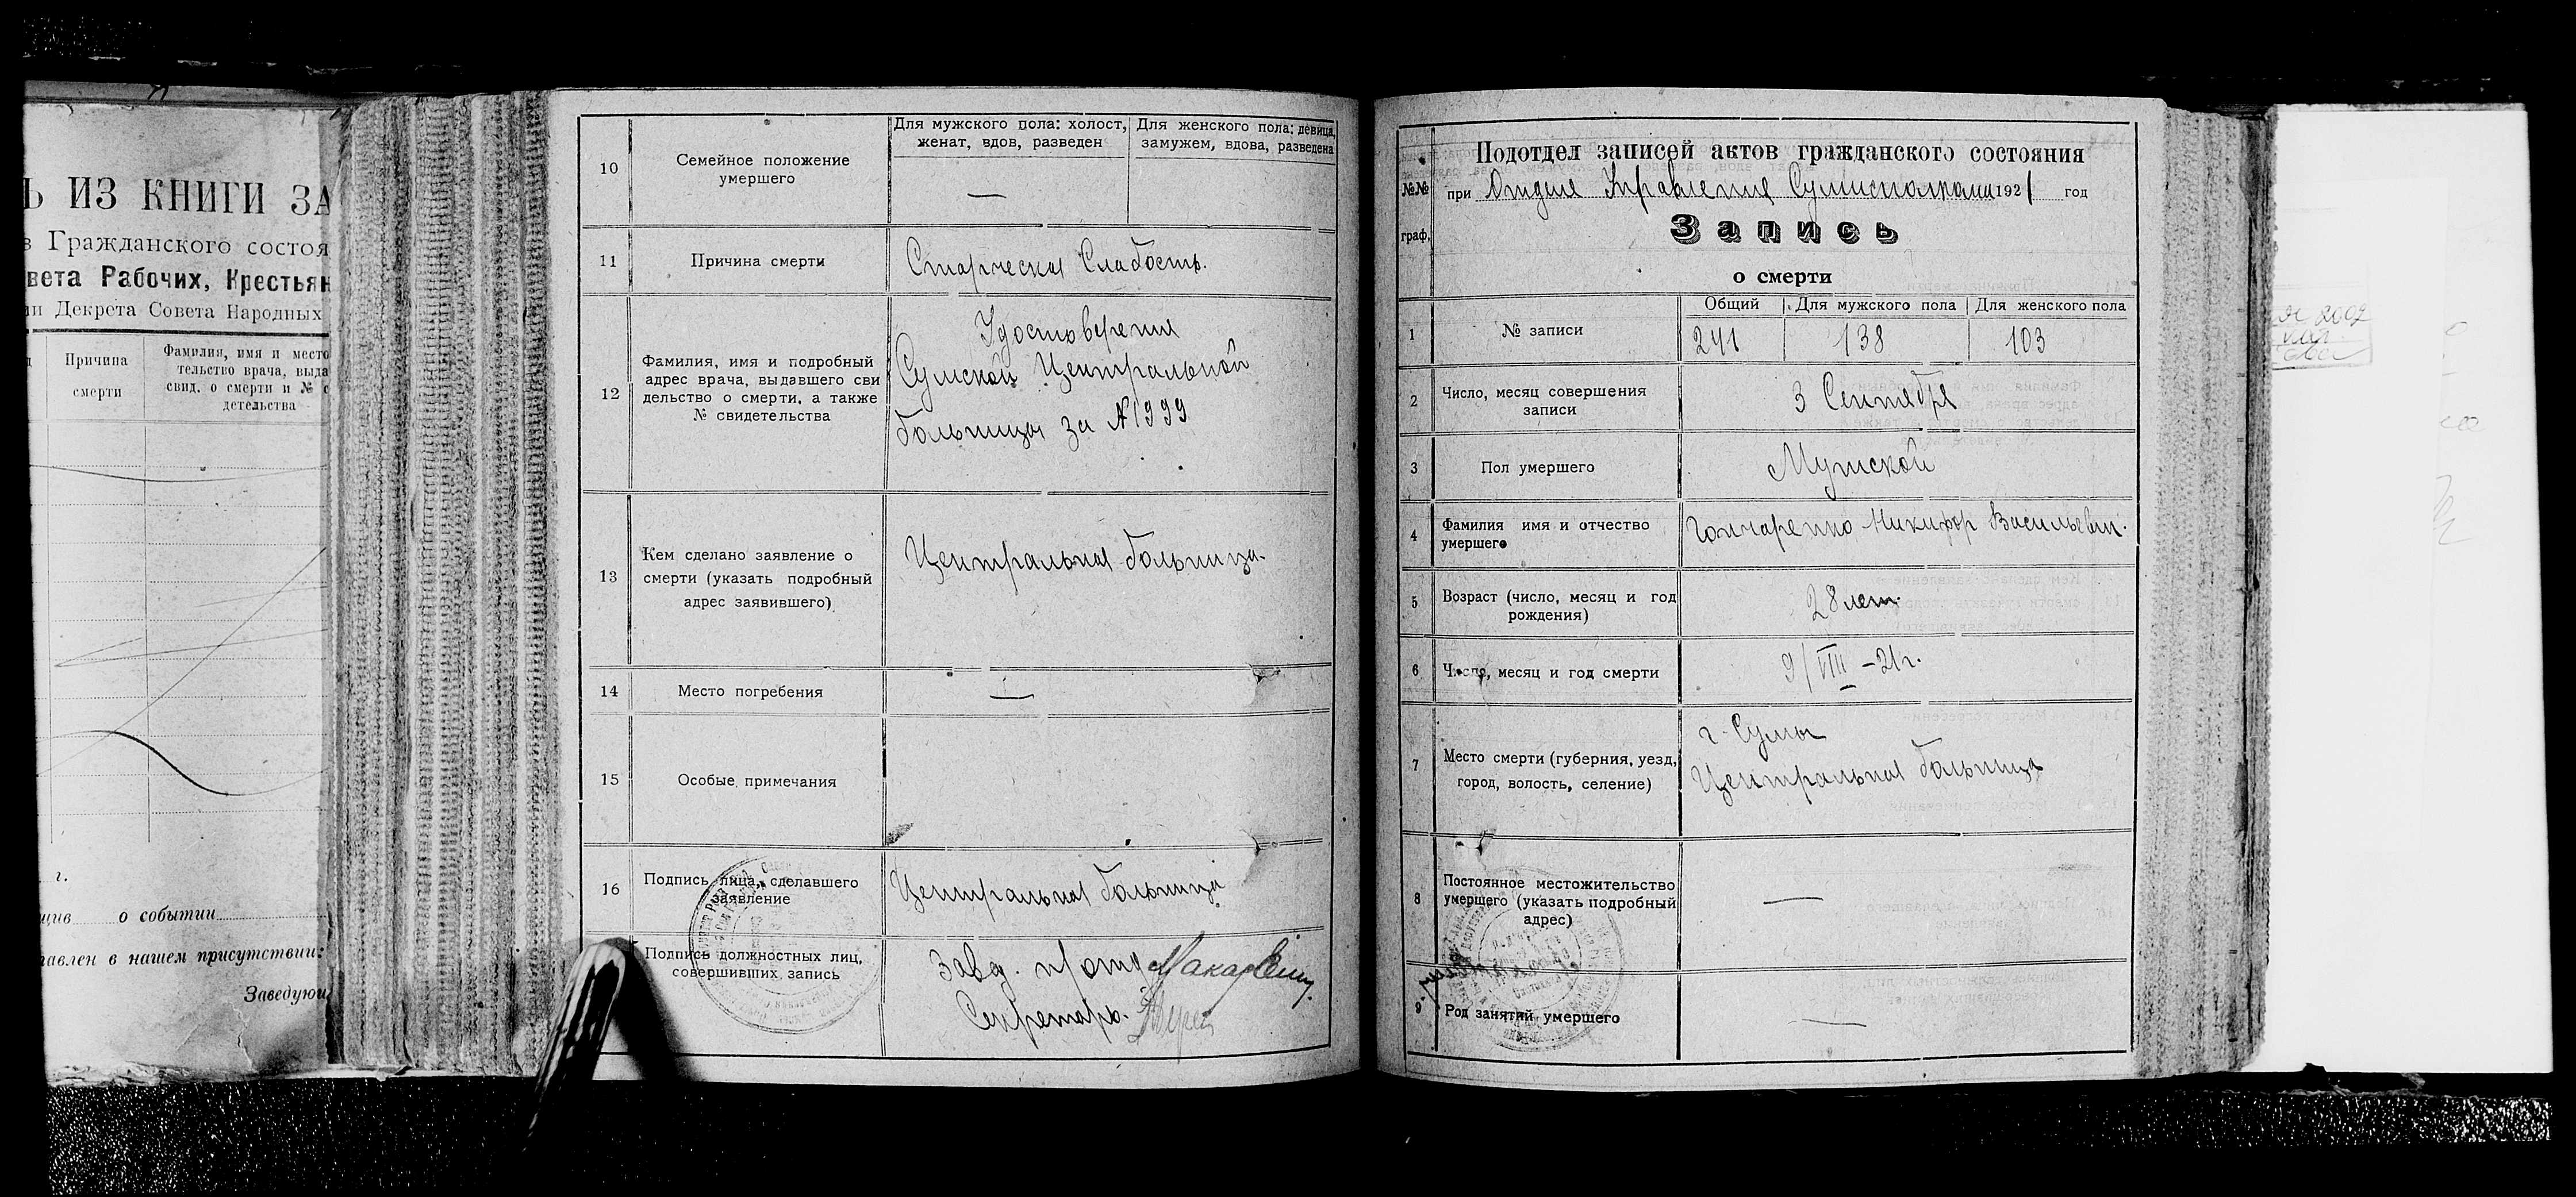 Ь ИЗ КНИГИ ЗА
в Гражданского состоя
вета Рабочих, Крестьян
ии Декрета Совета Народных
Причина
смерти
Фамилия, имя и место
тельство врача, выда
свид. о смерти и № с
детельства
г.
щив о событии
тавлен в нашем присутствии:
Заведую
10
Семейное положение
умершего
Для мужского пола: холост,
женат, вдов, разведен
Для женского пола: девица,
замужем, вдова, разведена
—
11
Причина смерти
Старческая Слабость.
12
Фамилия, имя и подробный
адрес врача, выдавшего сви
дельство о смерти, а также
№ свидетельства
Удостоверения
Сумской Центральной
больницы за №1999
13
Кем сделано заявление о
смерти (указать подробный
адрес заявившего)
Центральная больница.
14
Место погребения
—
15
Особые примечания
16
Подпись лица, сделавшего
заявление
Центральная больница
Подпись должностных лиц,
совершивших запись
Завд. п/отд
Секретарь.
№№
граф.
Подотдел записей актов гражданского состояния
при Отделе Управления Сумисполкома 1921 год
Запись
о смерти
1
№ записи
Общий
Для мужского пола
Для женского пола
241
138
103
2
Число, месяц совершения
записи
3 Сентября
3
Пол умершего
Мужской
4
Фамилия имя и отчество
умершего
Гончаренко Никифор Васильевич.
5
Возраст (число, месяц и год
рождения)
28 лет.
6
Число, месяц и год смерти
9/VIII –21г.
7
Место смерти (губерния, уезд,
город, волость, селение)
г. Сумы
Центральная больница
8
Постоянное местожительство
умершего (указать подробный
адрес)
—
9
Род занятий умершего
—
2002